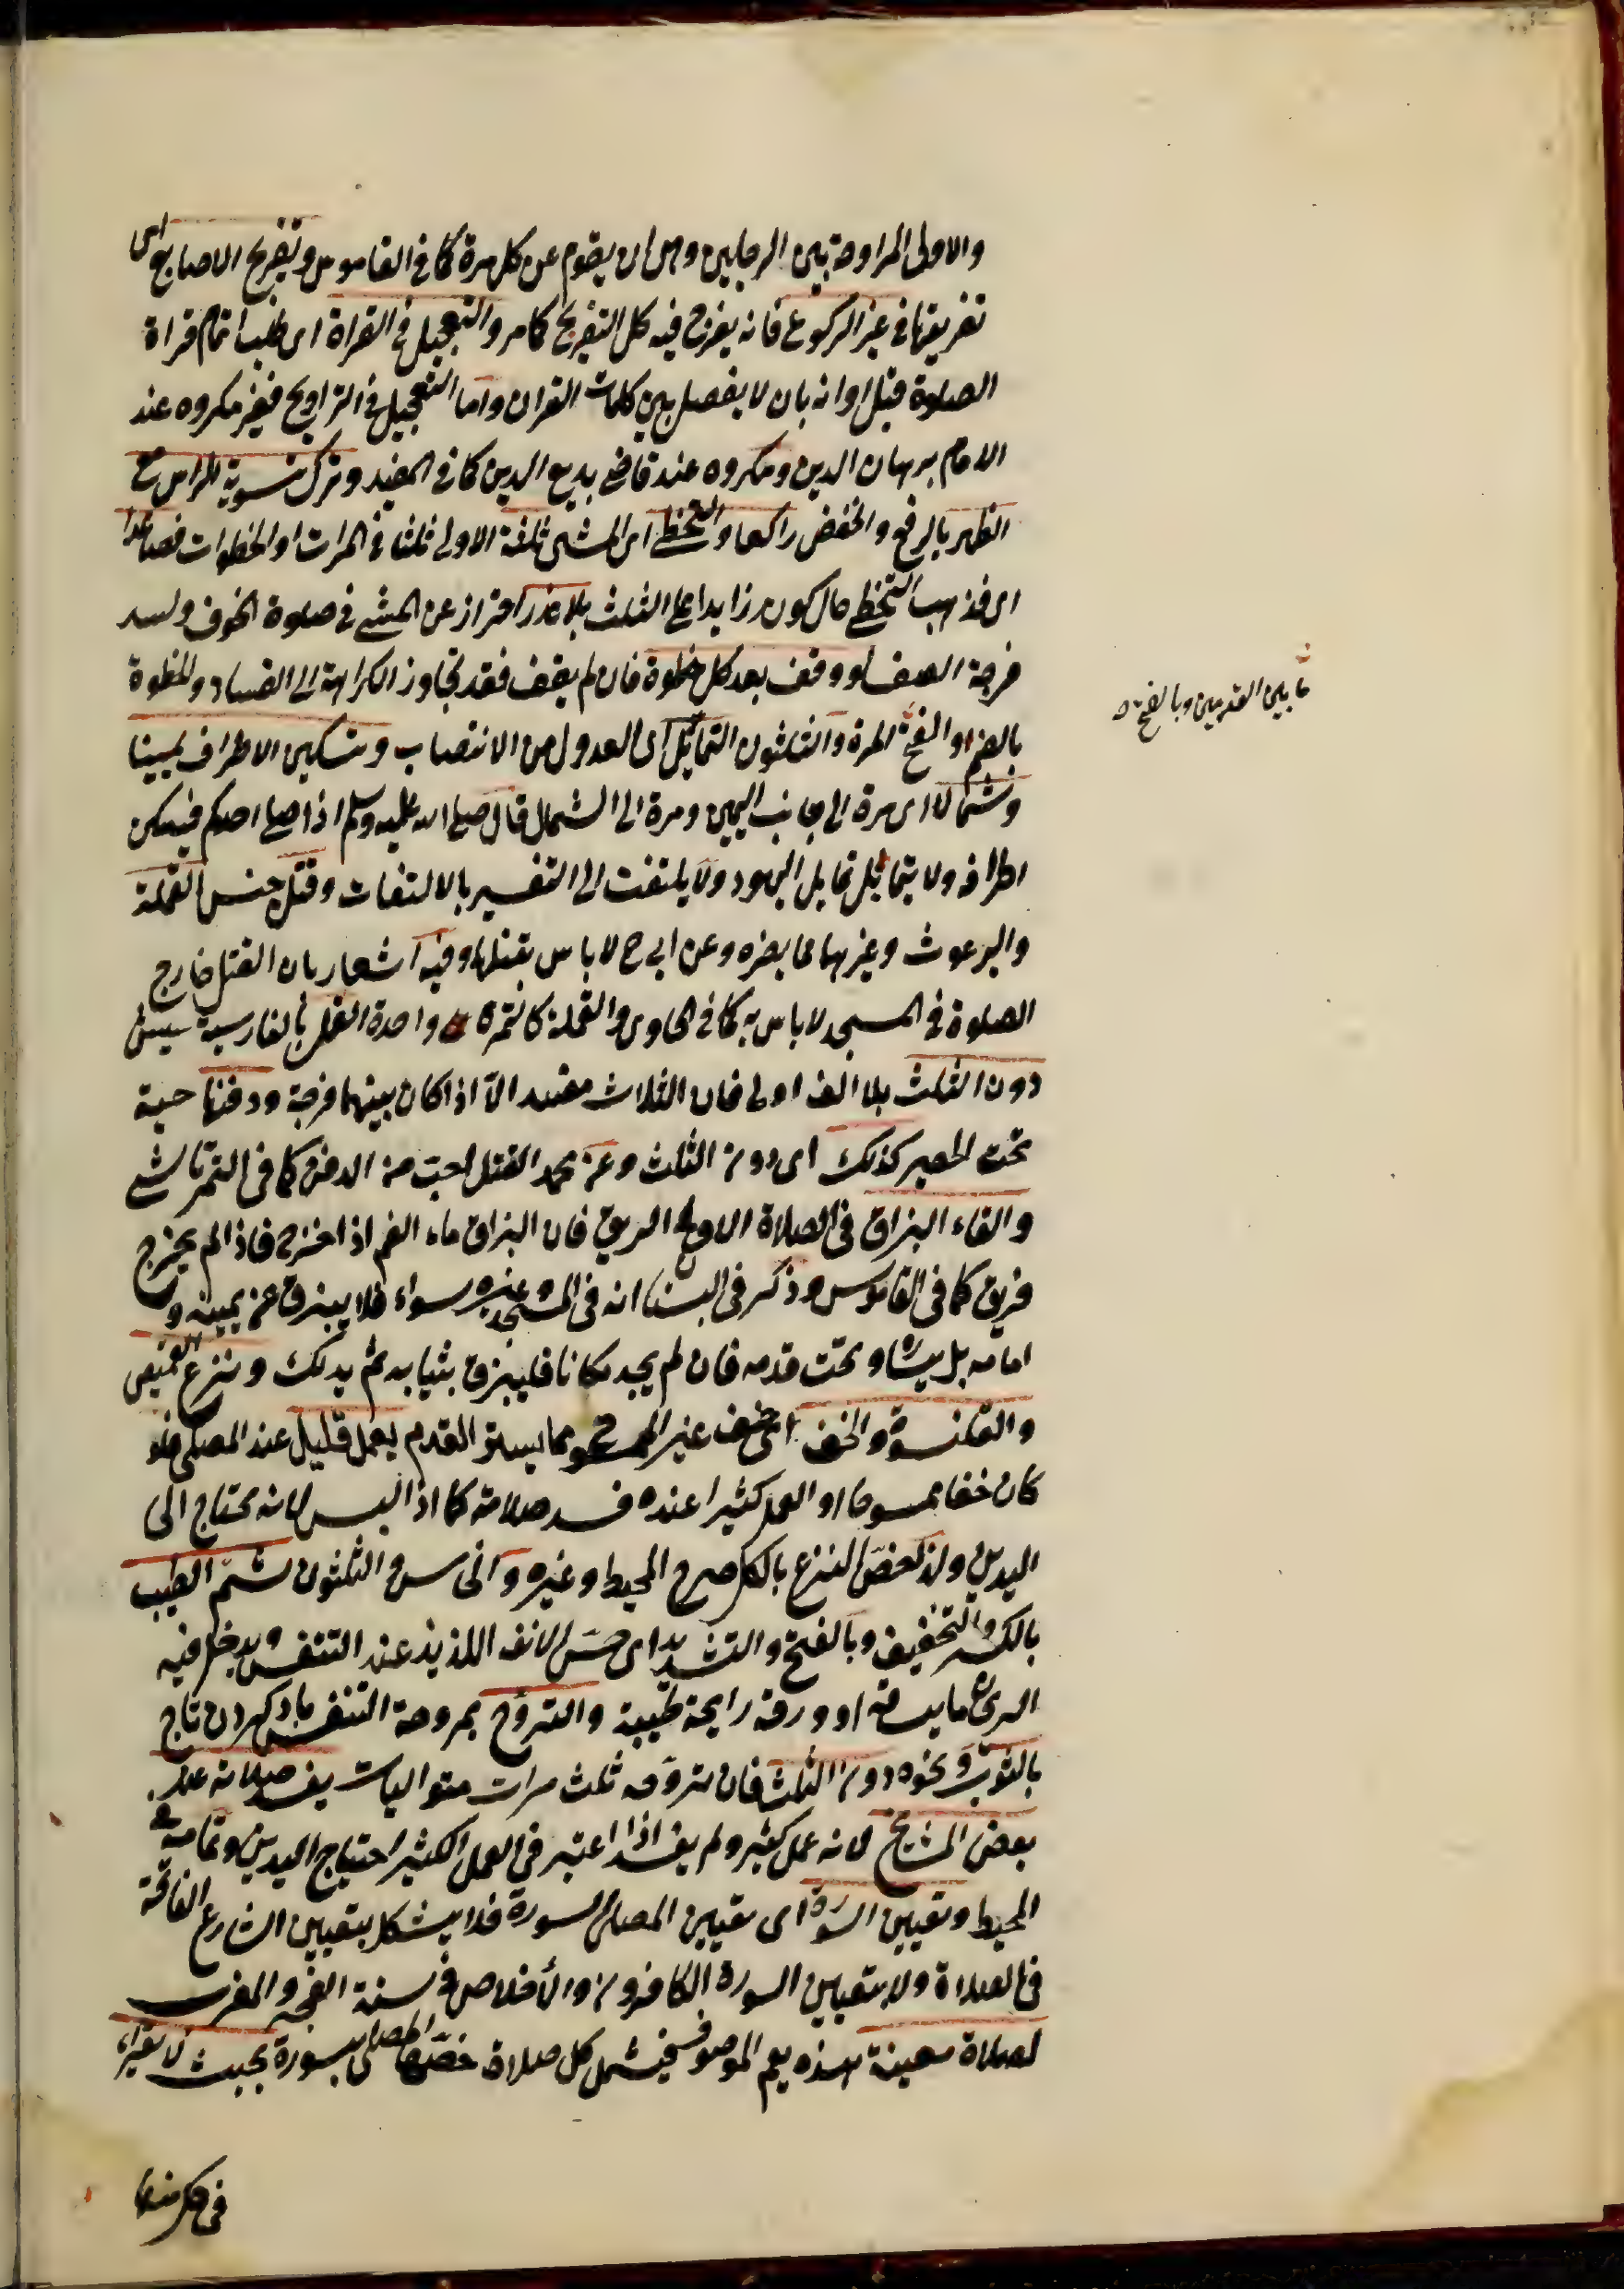 والاولى المراوحة بين الرجلين وهى ان يقوم على كل مرة كما فى القاموس وتفريج الاصابع اى
تفريقها فى غير الركوع فانه يفرج فيه كل التفريج كما مر والتعجيل فى القراة اى طلب اتمام قراة
الصلوة قبل اوانه بان لا يفصل بين كلمات القران واما التعجيل فى التراويح فغير مكروه عند
الامام برهان الدين ومكروه عند قاضى بديع الدين كما فى المفيد وترك تسوية الراس مع
الظهر بالرفع والخفض راكعا والتخطى اى المشى ثلثة الاولى ثلثا فى المرات او الخطوات فصاعدا
اى فذهب التخطى حال كونه زايدا على الثلث بلا عذر احتراز عن المشى فى صلوة الخوف ولسد
فرجة الصف لو وقف بعد كل خطوة فان لم يقف فقد تجاوز الكراهة الى الفساد والخطوة
بالضم او الفتح المرة والثلثون التمايل اى العدول من الانتصاب وتسكين الاطراف يمينا
وشمالا اى مرة الى جانب اليمين ومرة الى الشمال قال صلى الله عليه وسلم اذا صلى احدكم فليسكن
اطرافه ولا يتمايل تمايل اليهود ولا يلتفت الى التفسير بالالتفات وقتل جنس القملة
والبرغوث وغيرهما مما يضره وعن ابى ح لا باس بقتلها وفيه اشعار بان القتل خارج
الصلوة فى المسجد لا باس به كما فى الحاوى والقملة كالتمرة واحدة القمل بالفارسية سپش
دون الثلث بلا الف اولى فان الثلاث مفسد الا اذا كان بينهما فرجة ودفنها حية
تحت الحصير كذلك اى دون الثلث وعن محمد القتل احب من الدفن كما فى التمرتاشى
والقاء البزاق فى الصلاة الاولى الريق فان البزاق ماء الفم اذا اخرج فاذا لم يخرج
فريق كما فى القاموس وذكر فى البستان انه فى المسجد وغيره سواء فلا يبزق عن يمينه و
امامه بل يساره او تحت قدمه فان لم يجد مكانا فليبزق بثيابه ثم يدلك ونزع القميص
والقلنسوة والخف اى خف غير الممسوح مما يستر القدم بعمل قليل عند المصلى فلو
كان خفا ممسوحا او العمل كثيرا عنده فسد صلاته كما اذا لبس لانه يحتاج الى
اليدين ولذا خص النزع بالكل صرح المحيط وغيره والخامس والثلثون شم الطيب
بالكسر والتخفيف وبالفتح والتشديد اى حس الانف اللذيذ عند التنفس ويدخل فيه
الريح ما يساقه او ورقه رايحة طيبة والتروح بمروحة التنفس باد كردن تاج
بالثوب ونحوه دون الثلث فان تروحه ثلث مرات متواليات يفسد صلاته عند
بعض المشايخ لانه عمل كثير ولم يفسد اذا اعتبر فى العمل الكثير احتياج اليدين وتمامه فى
المحيط وتعيين السورة اى تعيين المصلى السورة فلا يشكل بتعيين الشارع الفاتحة
فى الصلاة ولا بتعيين السورة الكافرون والاخلاص فى سنة الفجر والمغرب
لصلاة معينة هذه يعم الموصوف فيشمل كل صلاة خصها المصلى بسورة بحيث لا يقراء
ما بين القدمين وبالفتح